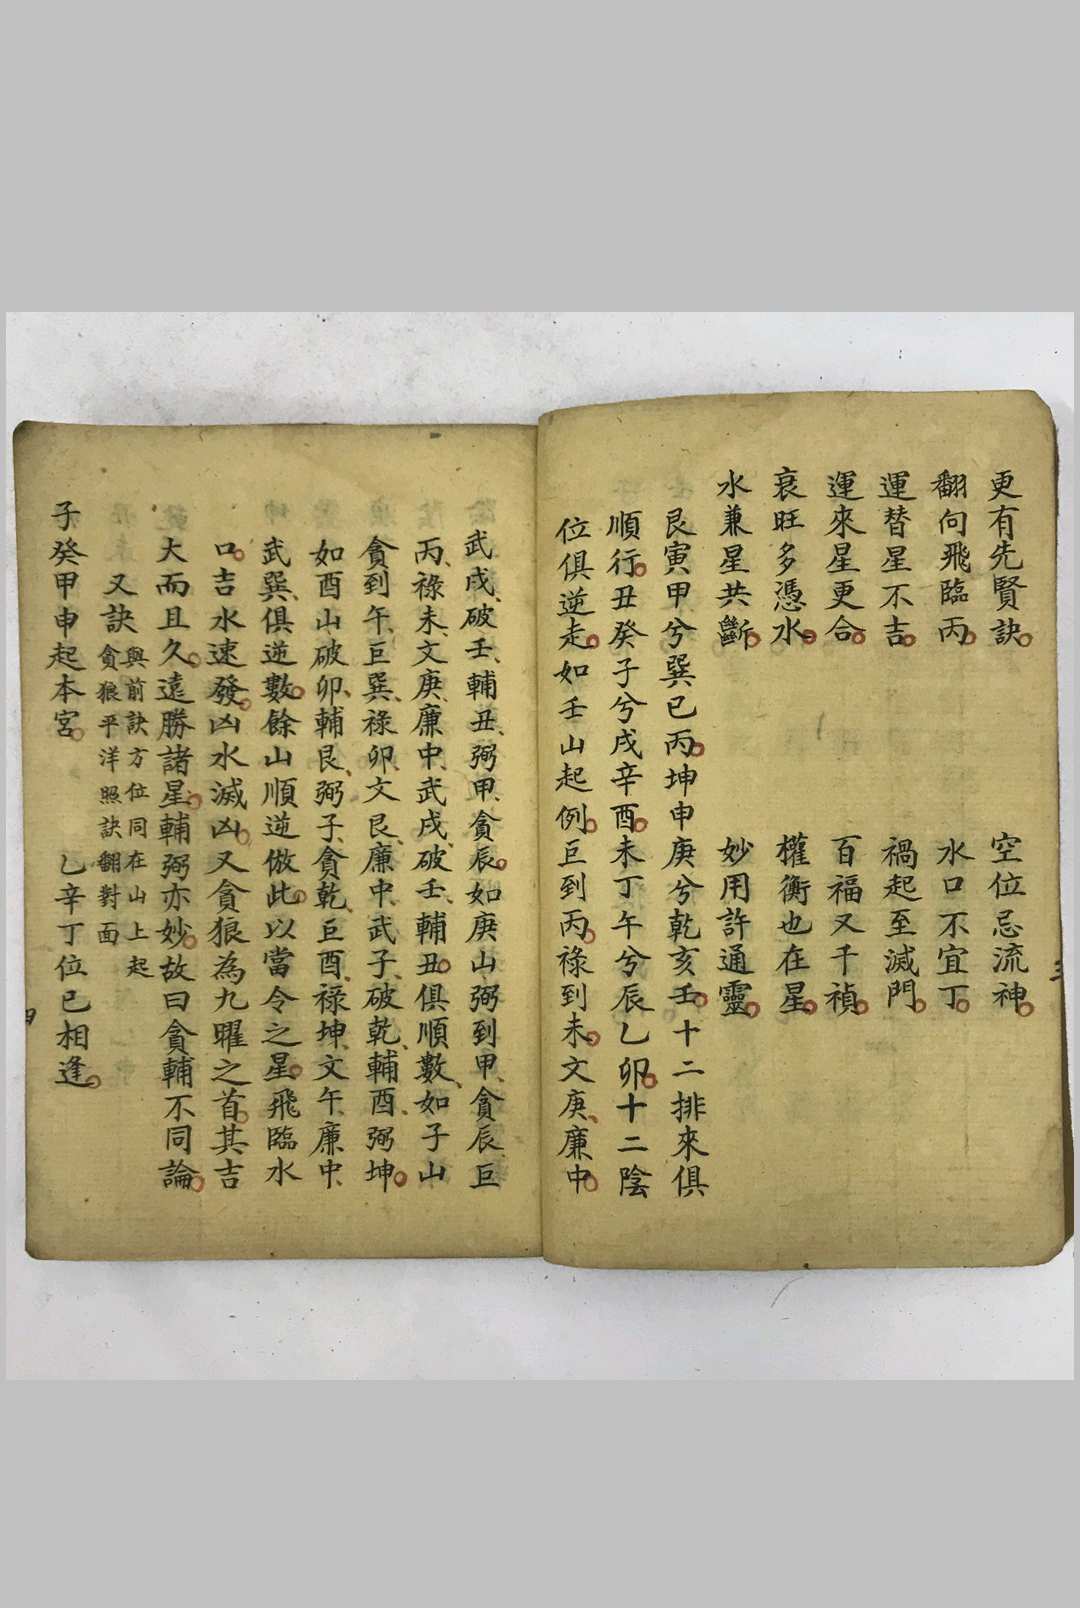 更有先賢訣　空位忌流神
翻向飛臨丙　水口不宜丁
運替星不吉　禍起至滅門
運來星更合　百福又千禎
衰旺多憑水　權衡也在星
水兼星共斷　妙用許通靈
艮寅甲兮巽巳丙坤申庚兮乾亥壬十二排來俱
順行丑癸子兮戌辛酉未丁午兮辰乙卯十二陰
位俱逆走如壬山起例巨到丙祿到未文庚廉中
武戌破壬輔丑弼甲貪辰如庚山弼到甲貪辰巨
丙祿未文庚廉中武戌破壬輔丑俱順數如子山
貪到午巨巽祿卯文艮廉中武子破乾輔酉弼坤
如酉山破卯輔艮弼子貪乾巨酉祿坤文午廉中
武巽俱逆數餘山順逆倣此以當令之星飛臨水
口吉水速發凶水滅凶又貪狼為九曜之首其吉
大而且久遠勝諸星輔弼亦妙故曰貪輔不同論
又訣與前訣方位同在山上起
貪狼平洋照訣翻對面
子癸甲申起本宮　乙辛丁位已相逢